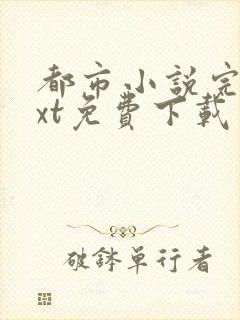 都市小說完
xt免費下載
破缽單行者